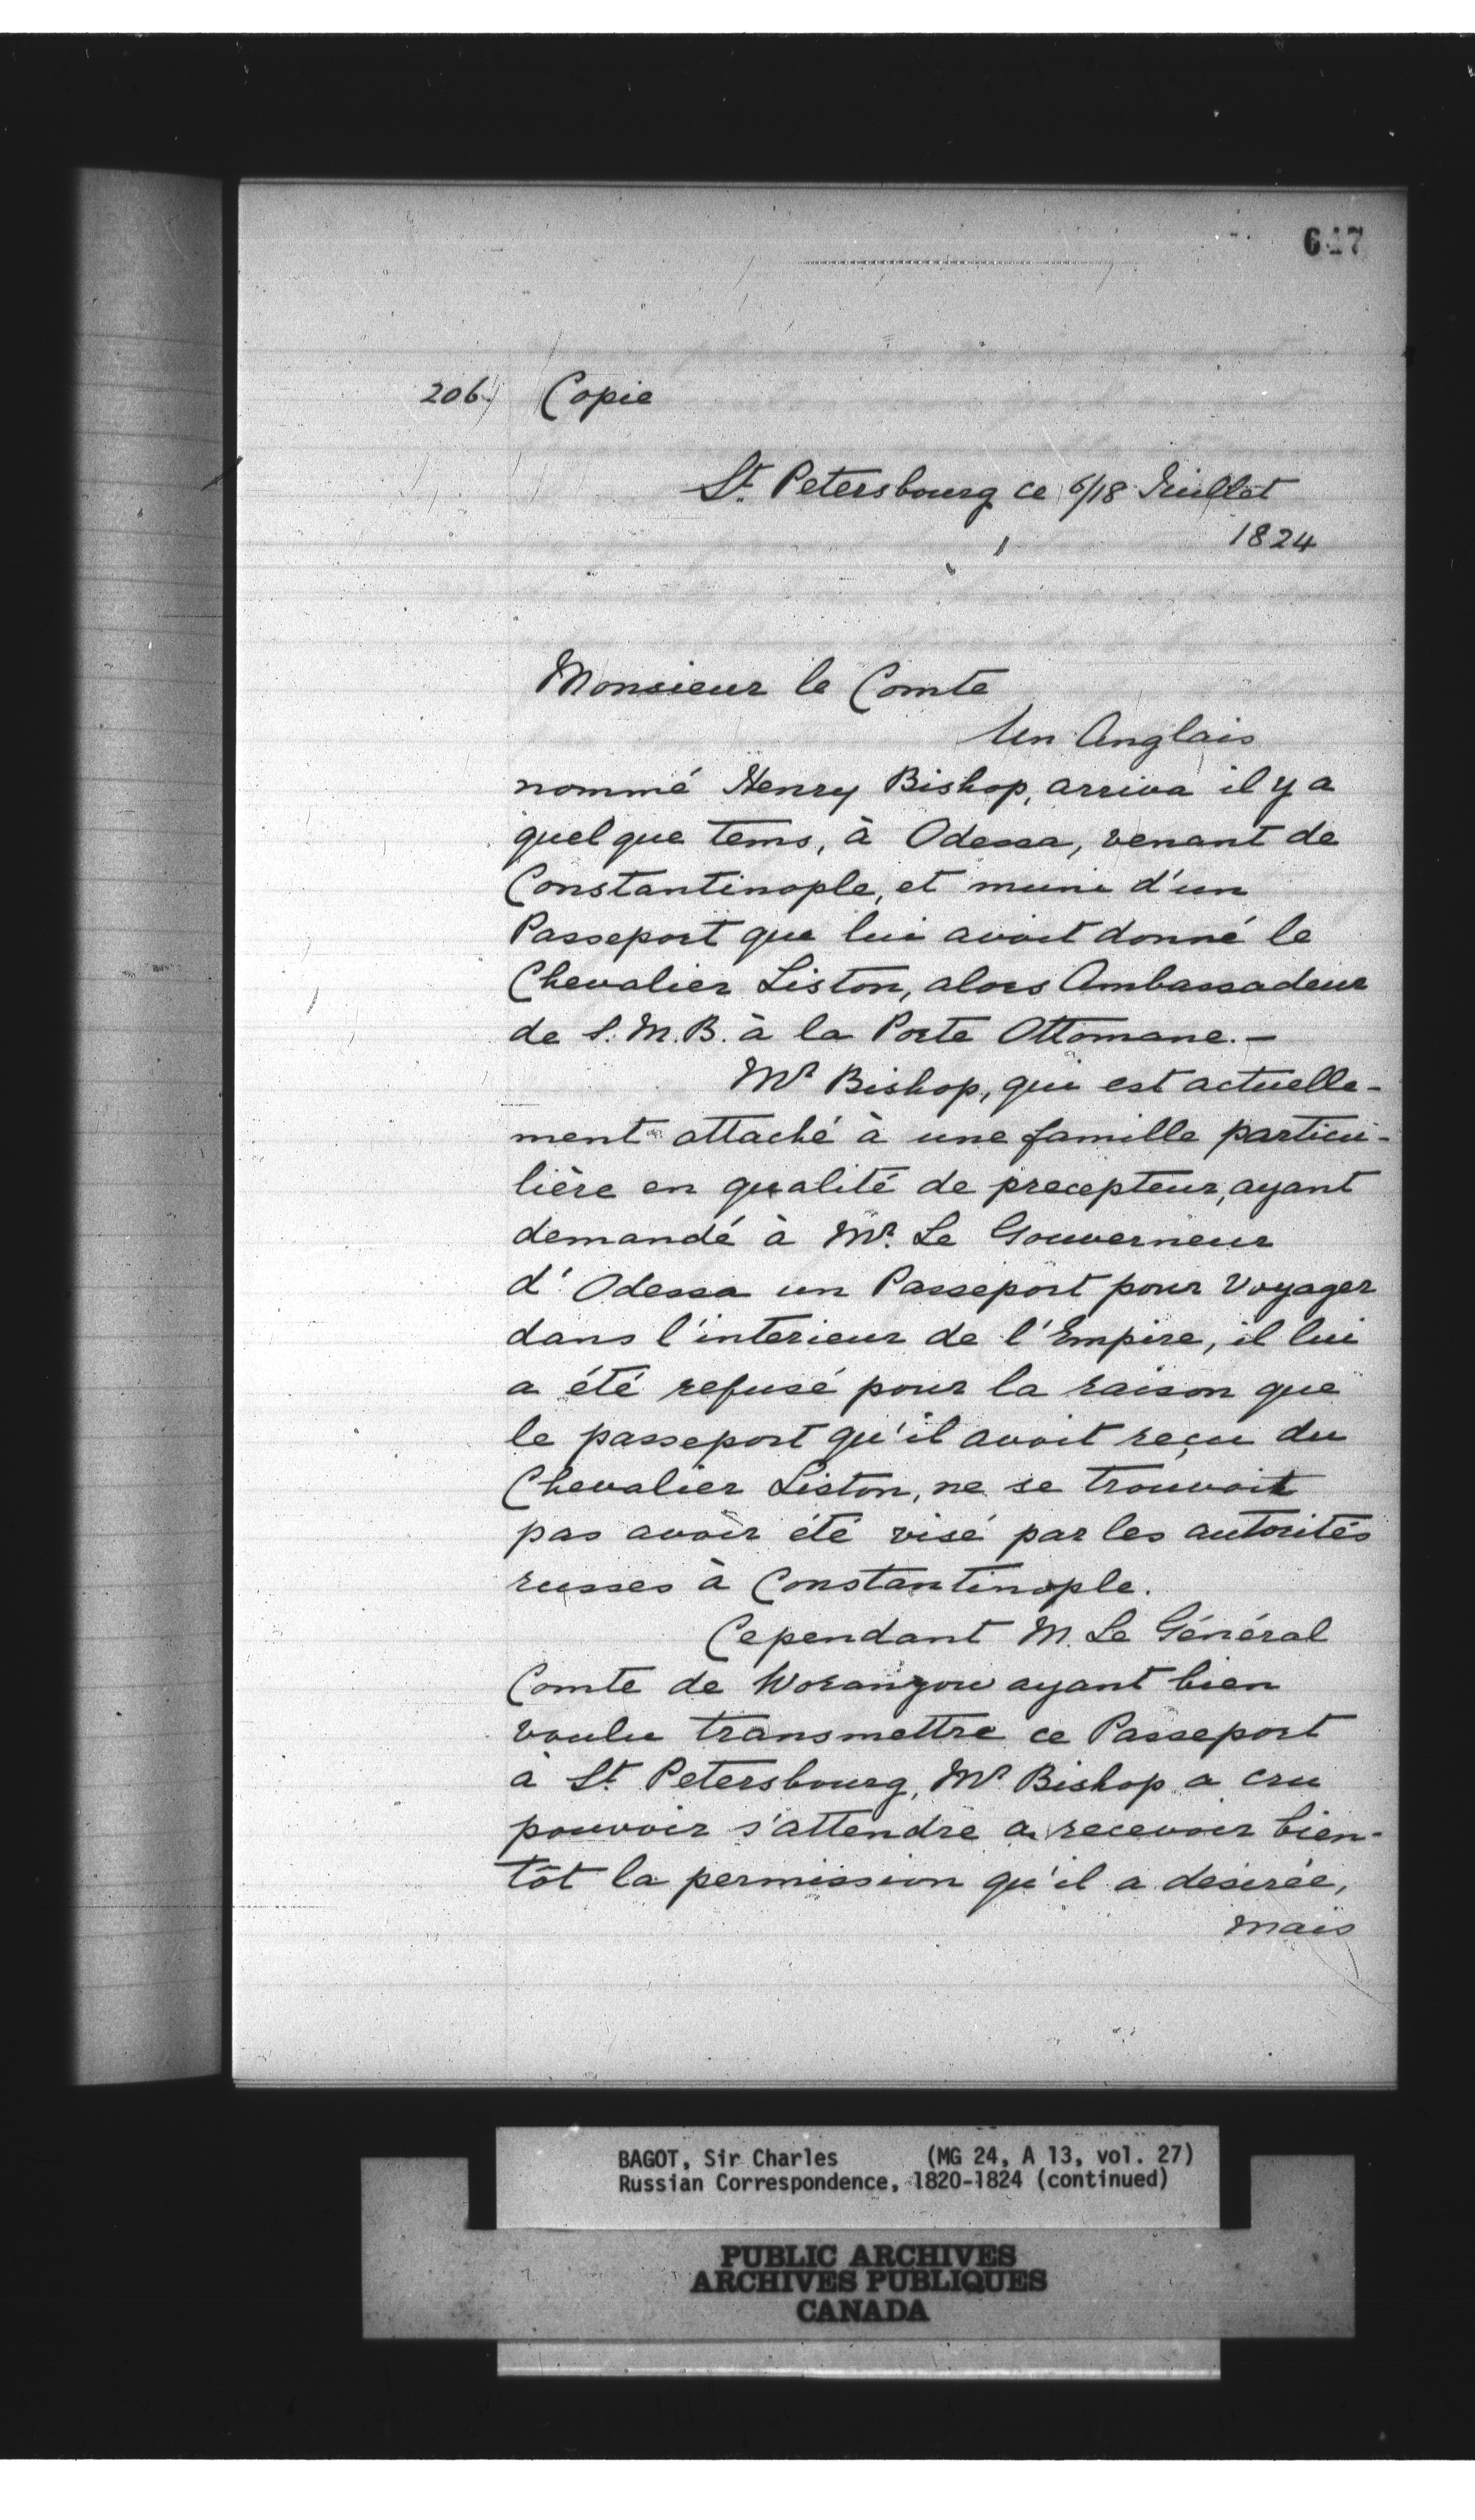 647
206.) Copie
St. Petersbourg ce 6/18 Juillet
1824
Monsieur le Comte
Un Anglais
nommé Henry Bishop, arriva il y a
quelque tems, à Odessa, venant de
Constantinople, et muni d'un
Passeport que lui avoit donné le
Chevalier Liston, alors Ambassadeur
de S. M. B. à la Porte Ottomane. —
Mr Bishop, qui est actuelle-
ment attaché à une famille particu-
lière en qualité de precepteur, ayant
demandé à Mr. Le Gouverneur
d'Odessa un Passeport pour Voyager
dans l'interieur de l'Empire, il lui
a été refusé pour la raison que
le passeport qu'il avoit reçu du
Chevalier Liston, ne se trouvoit
pas avoir été visé par les autorités
russes à Constantinople.
Cependant M. Le Général
Comte de Woranzow ayant bien
voulu transmettre ce Passeport
à St. Petersbourg, Mr Bishop a cru
pouvoir s'attendre a recevoir bien-
tôt la permission qu'il a desirée,
mais
BAGOT, Sir Charles (MG 24, A 13, vol. 27)
Russian Correspondence, 1820-1824 (continued)
PUBLIC ARCHIVES
ARCHIVES PUBLIQUES
CANADA